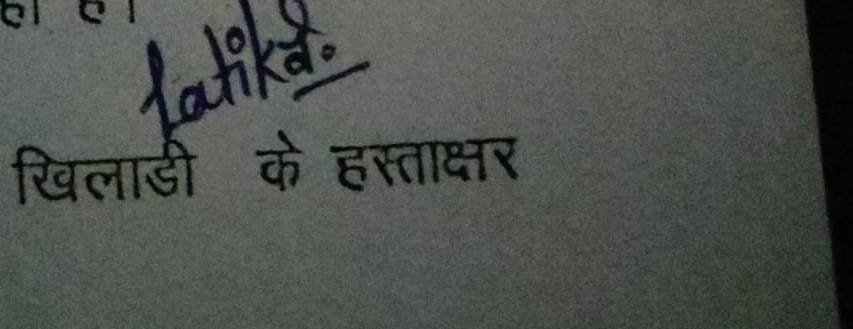 Latika.
खिलाडी के हस्ताक्षर